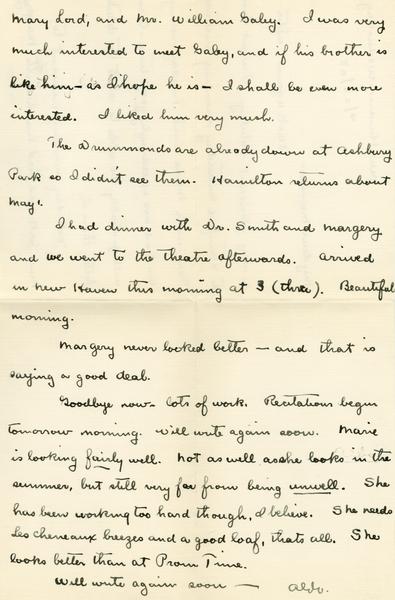 Mary Lord, and Mr. William Galey. I was very
much interested to meet Galey, and if his brother is
like him – as I hope he is – I shall be even more
interested. I liked him very much.
The Drummonds are already down at Asbury
Park so I didn't see them. Hamilton returns about
May 1.
I had dinner with Dr. Smith and Margery
and we went to the theatre afterwards. Arrived
in New Haven this morning at 3 (three). Beautiful
morning.
Margery never looked better – and that is
saying a good deal.
Goodbye now – lots of work. Recitations begin
tomorrow morning. Will write again soon. Marie
is looking fairly well. Not as well as she looks in the
summer, but still very far from being unwell. She
has been working too hard though, I believe. She needs
Les Cheneaux breezes and a good loaf, thats all. She
looks better than at Prom Time.
Will write again soon — Aldo.